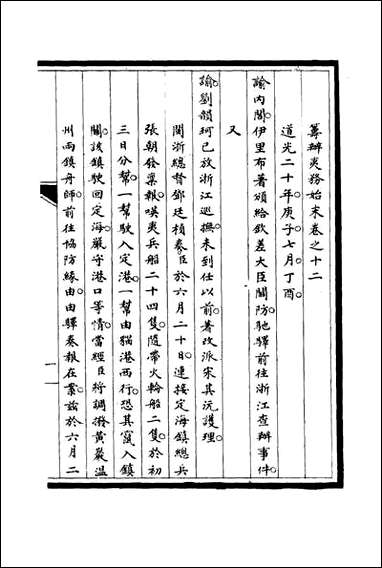 籌辦夷務始末卷之十二
道光二十年庚子七月丁酉
諭內閣伊里布著頒給欽差大臣關防馳驛前往浙江查辦事件
又
諭劉韻珂已放浙江巡撫未到任以前著改派宋其沅護理
閩浙總督鄧廷楨奏臣於六月二十日連接定海鎮總兵
張朝發稟報㗆夷兵船二十四隻隨帶火輪船二隻於初
三日分幫一幫駛入定港一幫由貓港西行恐其竄入鎮
關該鎮駛回定海嚴守港口等情當經臣將調撥黃巖溫
州兩鎮舟師前往協防緣由由驛奏報在案茲於六月二